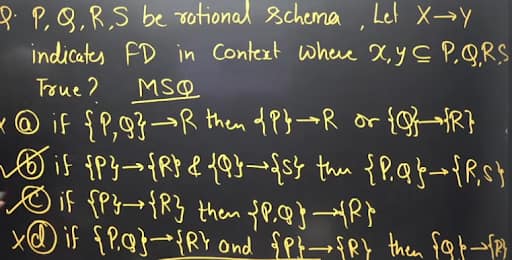 Q. P, Q, R, S be rotional Schema, Let X→Y
indicates FD in Context where x, y ⊆ P,Q,R,S
True? MSQ
x ⓐ if {P,Q}→R then {P}→R or {Q}→{R}
✓ⓑ if {P}→{R} & {Q}→{S} then {P,Q}→{R,S}
✓ⓒ if {P}→{R} then {P,Q}→{R}
xⓓ if {P,Q}→{R} and {P}→{R} then {Q}→{R}